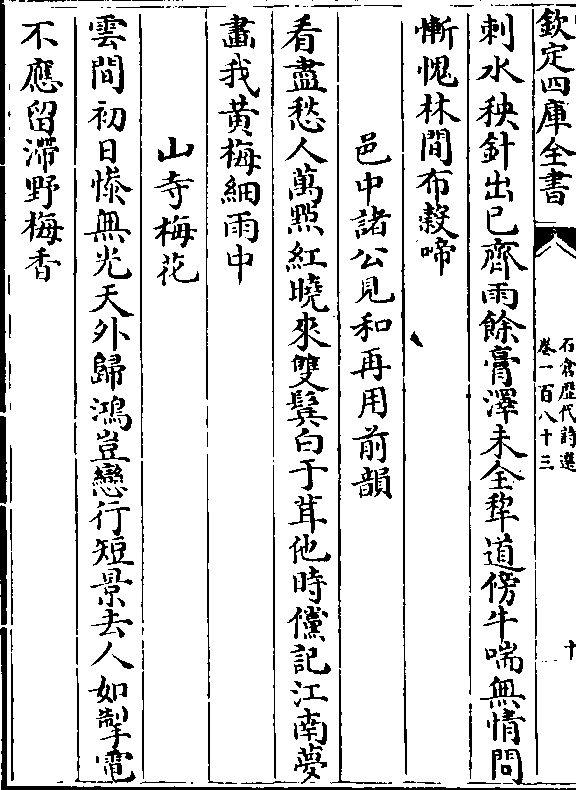 欽定四庫全書
石倉歴代詩選
卷一百八十三
十
刺水秧針出已齊雨餘膏澤未全犂道傍牛喘無情問
慚愧林間布糓啼
邑中諸公見和再用前韻
看盡愁人萬㸃紅曉來雙鬂白于茸他時儻記江南夢
畫我黄梅細雨中
山寺梅花
雲間初日惨無光天外歸鴻豈戀行短景去人如掣電
不應留滯野梅香